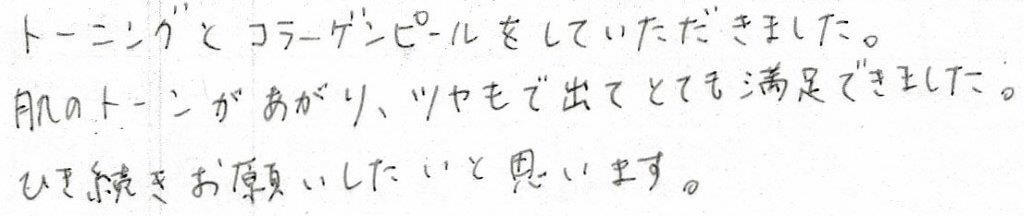 トーニングとコラーゲンピールをしていただきました。
肌のトーンがあがり、ツヤもで出てとても満足できました。
ひき続きお願いしたいと思います。